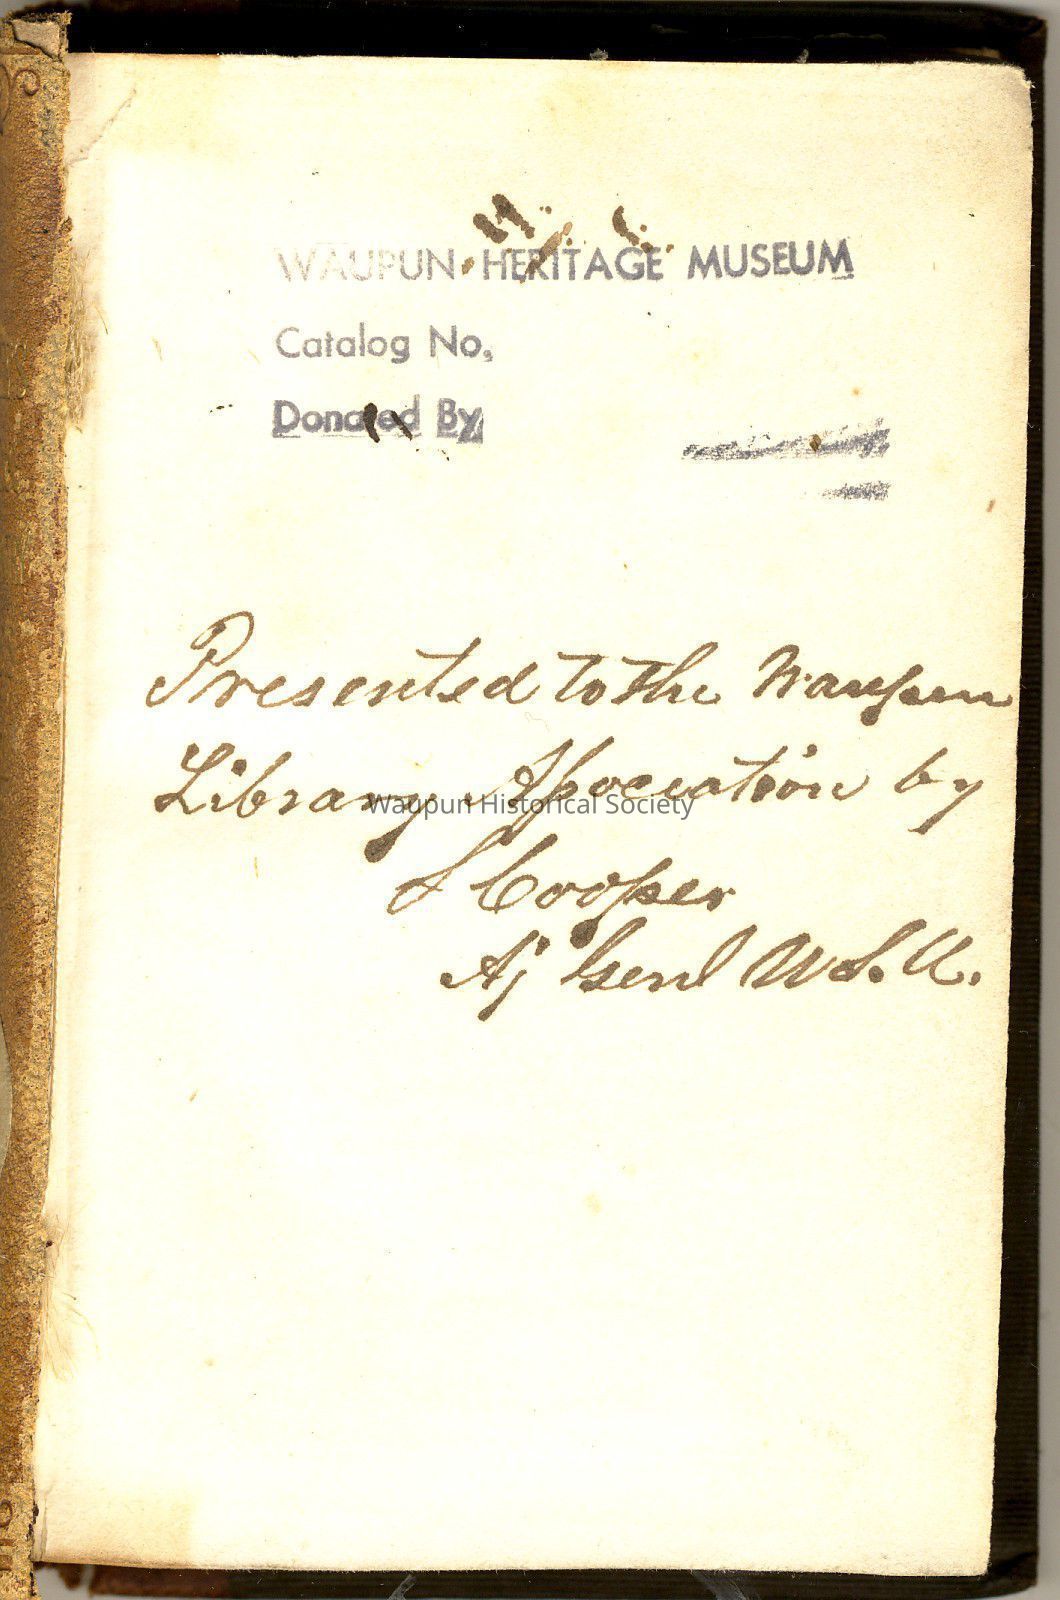 WAUPUN HERITAGE MUSEUM
Catalog No.
Donated By
Presented to the Waupun
Library Association by
S Cooper
Aj Genl U.S.A.
Waupun Historical Society